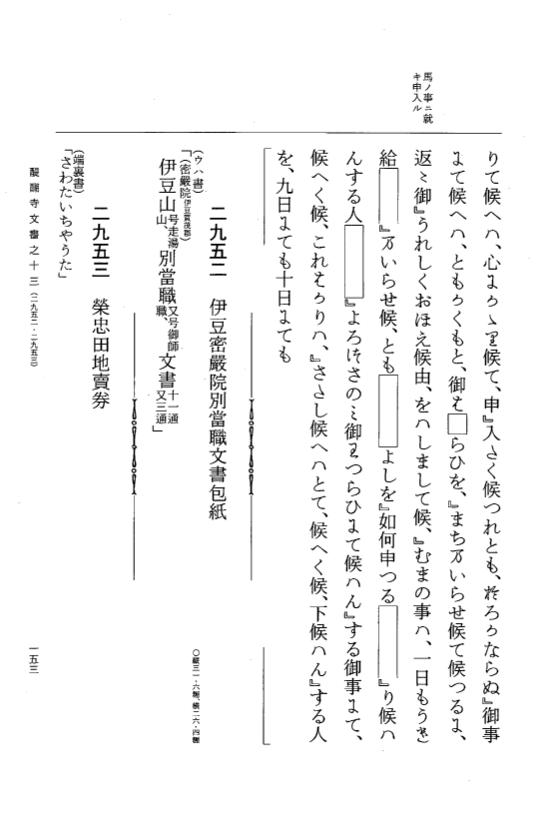 馬ノ事ニ就
キ申入ル
りて候へハ、心よりゝ里候て、申『入さく候つれとも、おろかならぬ『御事
まて候へハ、ともかくもと、御も□らひを、『まち万いらせ候て候つるよ、
返ミ御『うれしくおほえ候由、をハしまして候、『むまの事ハ、一日もうき
給□『万いらせ候、とも□よしを『如何申つる□『り候ハ
んする人□『よろけさのミ御王つらひまて候ハん『する御事まて、
候へく候、これもかりハ、『さゝし候へハとて、候へく候、下候ハん『する人
を、九日までも十日までも
二九五二　伊豆密嚴院別當職文書包紙
(ウハ書)
「(密嚴院伊豆賀茂郡)
伊豆山号走湯山、別當職又号御師職、文書十一通又三通」
○縱三一・六糎、横二六・四糎
二九五三　榮忠田地賣券
(端裏書)
「さわたいちやうた」
醍醐寺文書之十三(二九五二・二九五三)
一五三